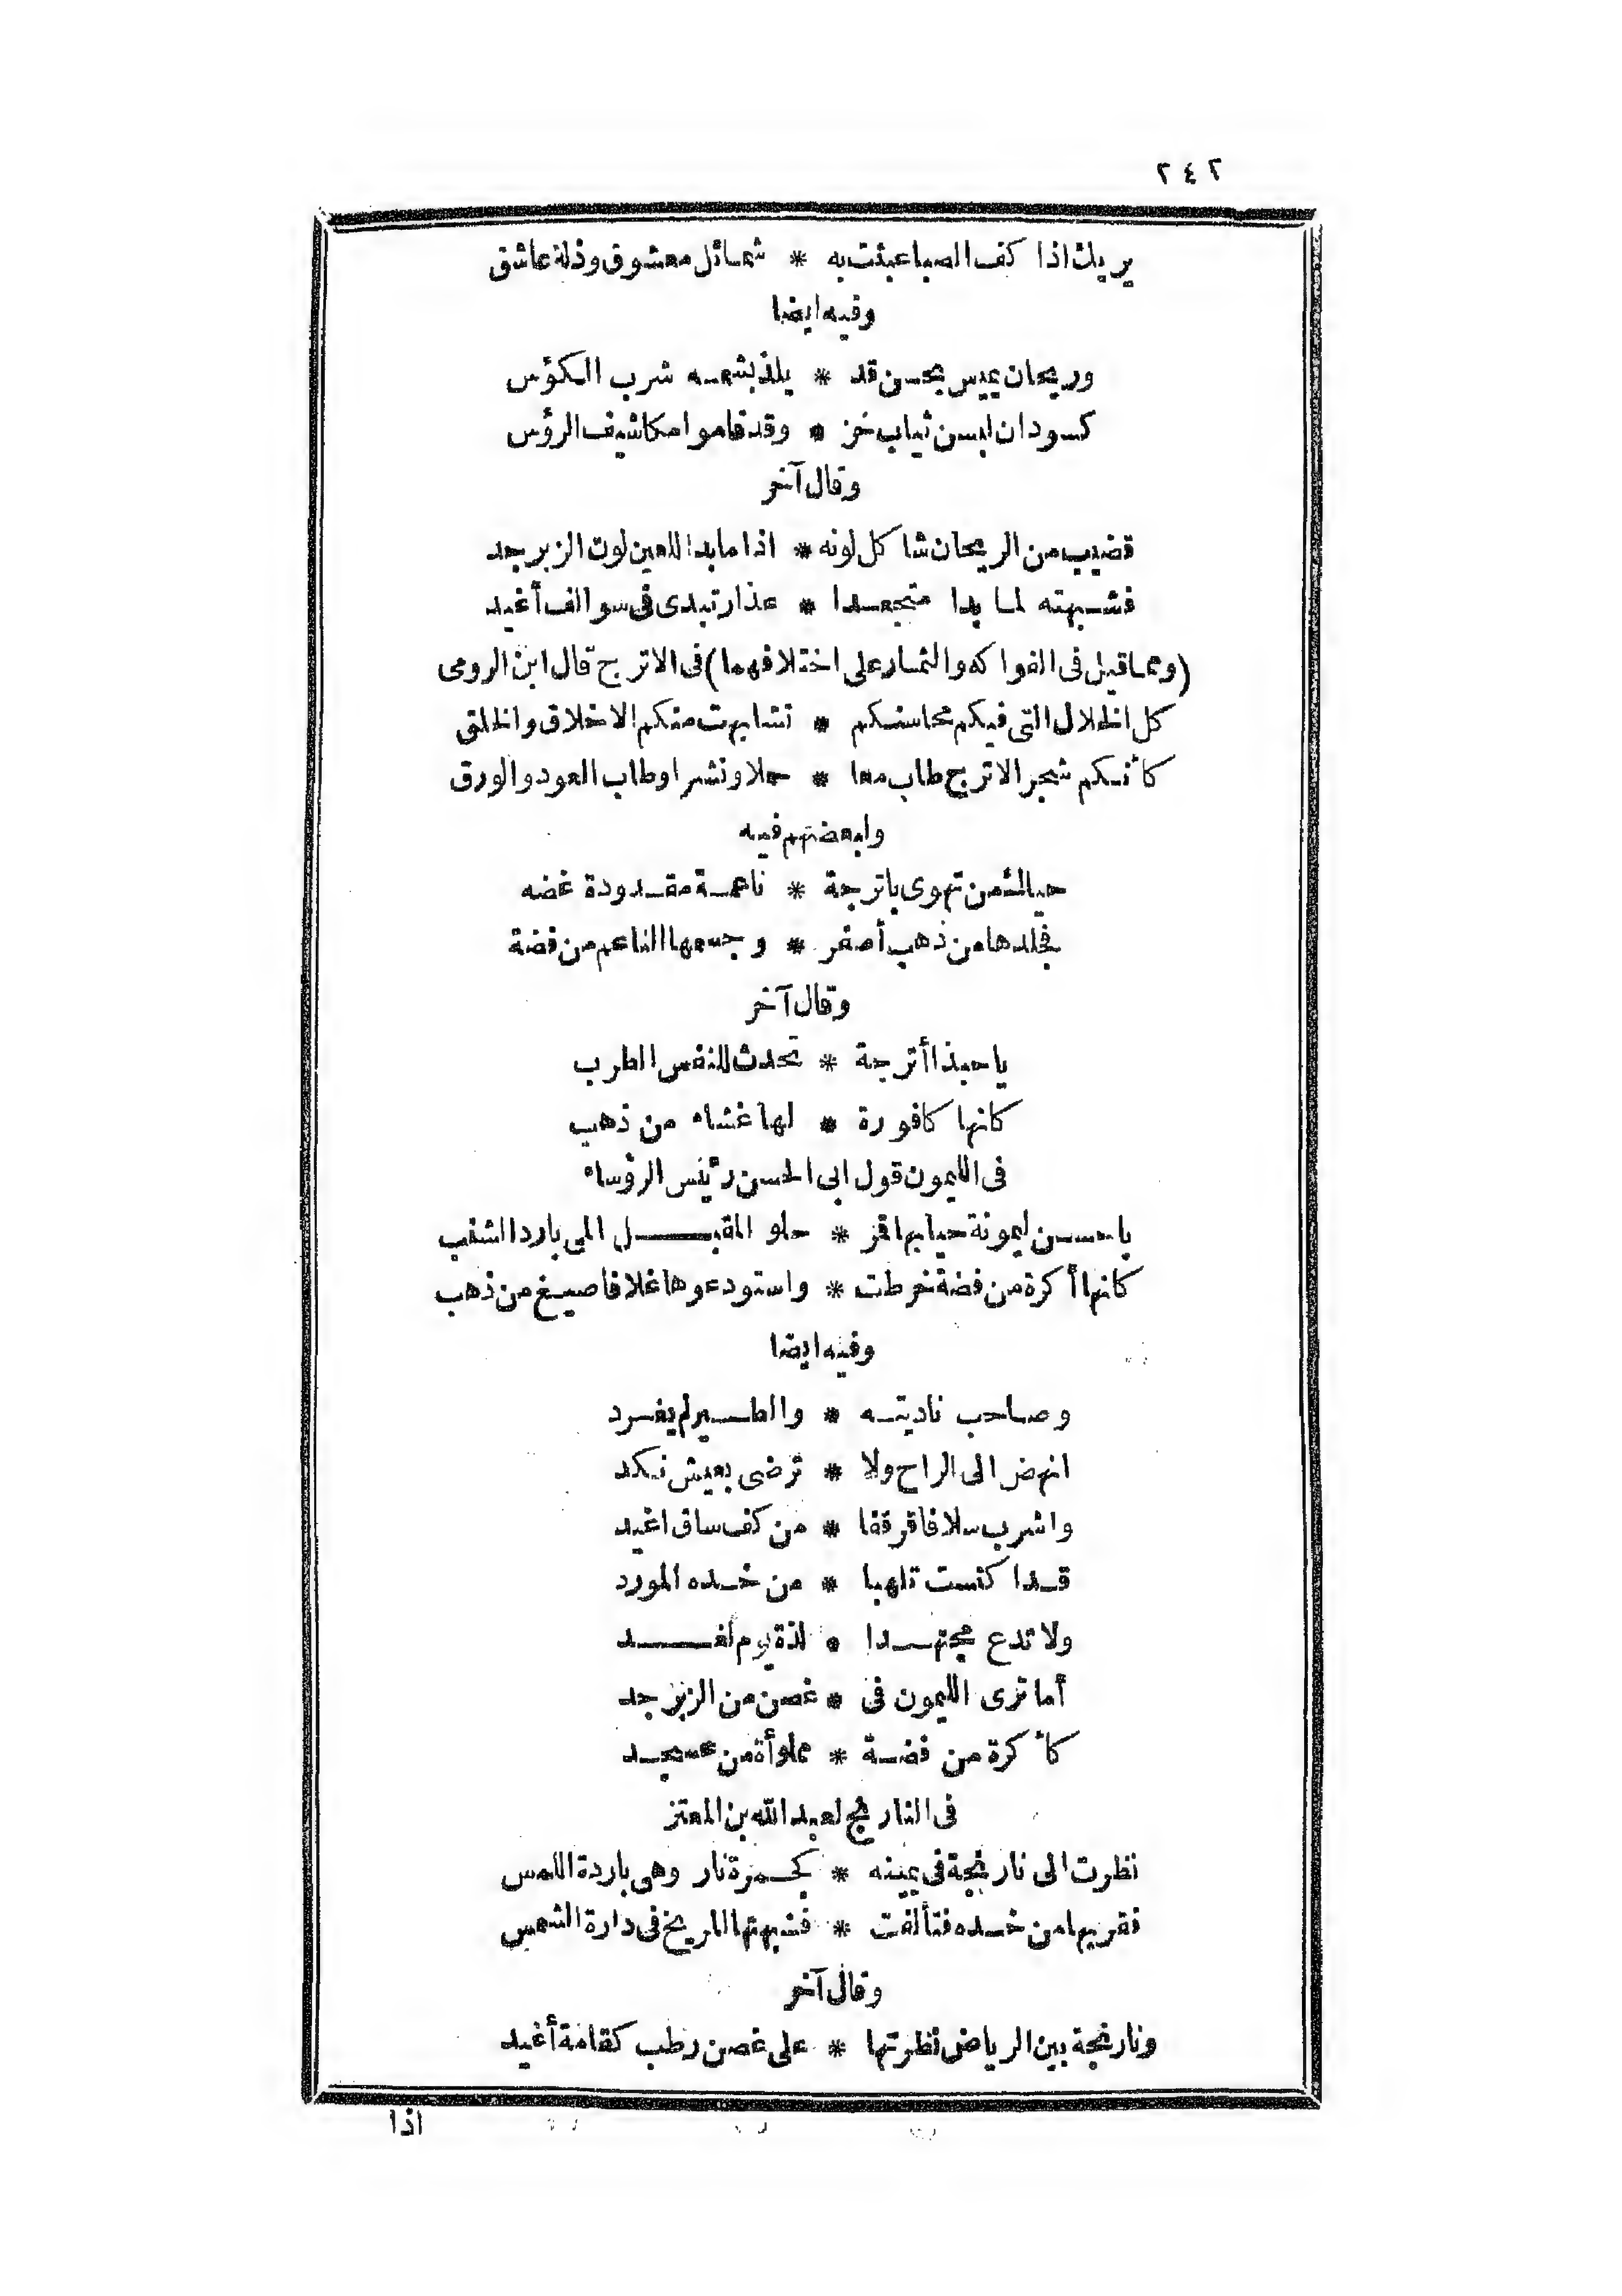 ٢٤٢
يريك اذا كف الصبا عبثت به * شمائل معشوق وذلة عاشق
وفيه ايضا
وريحان يميس بحسن قد * يلذ بشمه شرب الكؤس
كسودان لبسن ثياب خز * وقد قاموا مكاشيف الرؤس
وقال آخر
قضيب من الريحان شاكل لونه * اذا ما بدا للعين لون الزبرجد
فشبهته لما بدا متجعدا * عذار تبدى فى سوالف أغيد
(ومما قيل فى الفواكه والثمار على اختلافهما) فى الاترج قال ابن الرومى
كل الخلال التى فيكم محاسنكم * تشابهت منكم الاخلاق والخلق
كأنكم شجر الاترج طاب معا * حملا ونشرا وطاب العود والورق
ولبعضهم فيه
حياك من تهوى باترجة * ناعمة مقدودة غضه
فجلدها من ذهب أصفر * وجسمها الناعم من فضة
وقال آخر
يا حبذا أترجة * تحدث للنفس الطرب
كانها كافورة * لها غشاء من ذهب
فى الليمون قول ابى الحسن رئيس الرؤساء
يا حسن ليمونة حيا بها قمر * حلو المقبل المى بارد الشنب
كانها أكرة من فضة خرطت * واستودعوها غلافا صيغ من ذهب
وفيه ايضا
وصاحب ناديته * والطير لم يغرد
انهض الى الراح ولا * ترضى بعيش نكد
واشرب سلافا قرقفا * من كف ساق اغيد
قد اكتست تلهبا * من خده المورد
ولا تدع مجتهدا * لذة يوم لغد
أما ترى الليمون فى * غصن من الزبرجد
كأكرة من فضة * مملوأة من عسجد
فى النارنج لعبد الله بن المعتز
نظرت الى نارنجة فى يمينه * كجمرة نار وهى باردة اللمس
فقربها من خده فتألفت * فشبهتها المريخ فى دارة الشمس
وقال آخر
ونارنجة بين الرياض نظرتها * على غصن رطب كقامة أغيد
اذا